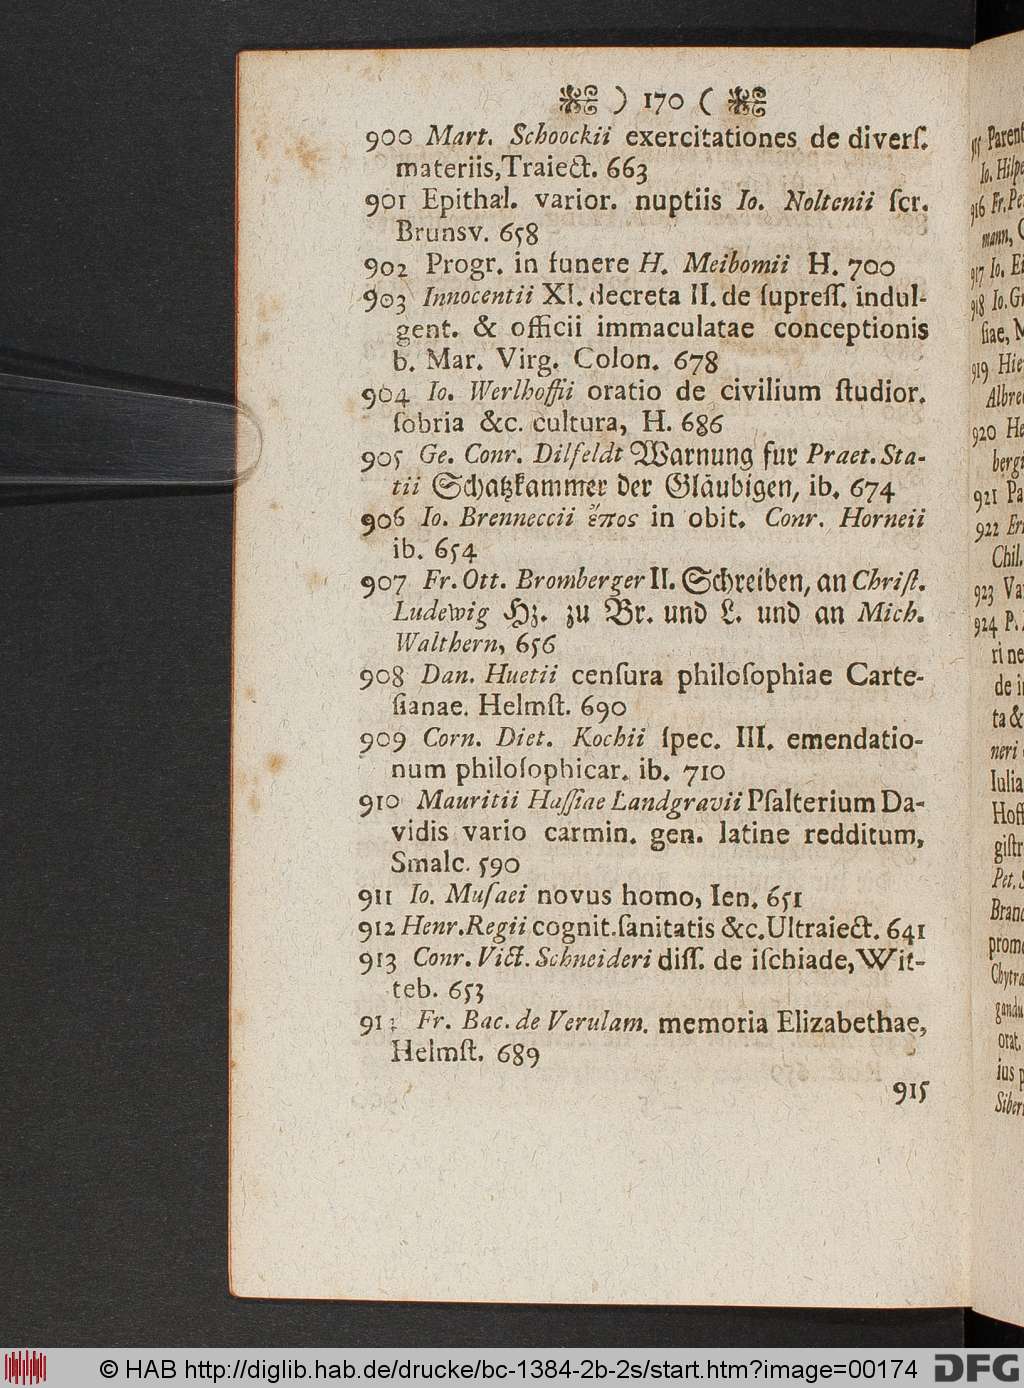 ) 170 (
900 Mart. Schoockii exercitationes de diverſ.
materiis, Traiect. 663
901 Epithal. varior. nuptiis Io. Noltenii ſcr.
Brunsv. 658
902 Progr. in funere H. Meibomii H. 700
903 Innocentii XI. decreta II. de ſupreſſ. indul-
gent. & officii immaculatae conceptionis
b. Mar. Virg. Colon. 678
904 Io. Werlhoffii oratio de civilium ſtudior.
ſobria &c. cultura, H. 686
905 Ge. Conr. Dilfeldt Warnung fur Praet. Sta-
tii Schatzkammer der Gläubigen, ib. 674
906 Io. Brenneccii ἔπος in obit. Conr. Horneii
ib. 654
907 Fr. Ott. Bromberger II. Schreiben, an Chriſt.
Ludewig Hz. zu Br. und L. und an Mich.
Walthern, 656
908 Dan. Huetii cenſura philoſophiae Carte-
ſianae. Helmſt. 690
909 Corn. Diet. Kochii ſpec. III. emendatio-
num philoſophicar. ib. 710
910 Mauritii Haſſiae Landgravii Pſalterium Da-
vidis vario carmin. gen. latine redditum,
Smalc. 590
911 Io. Muſaei novus homo, Ien. 651
912 Henr. Regii cognit. ſanitatis &c. Ultraiect. 641
913 Conr. Vict. Schneideri diſſ. de iſchiade, Wit-
teb. 653
Fr. Bac. de Verulam. memoria Elizabethae,
Helmſt. 689
915
Io. Hilpe
916 Fr. Pe
mann,
917 Io. Ei
918 Io. Gr
ſiae,
919 Hie
Albre
920 He
bergi
921 Pa
922 Er
Chil.
923 Va
924 P.
ri ne
de i
ta &
neri
Iulia
Hoff
giſtr
Pet.
Bran
prom
Chytra
gandu
orat.
ius p
Siber
© HAB http://diglib.hab.de/drucke/bc-1384-2b-2s/start.htm?image=00174
DFG